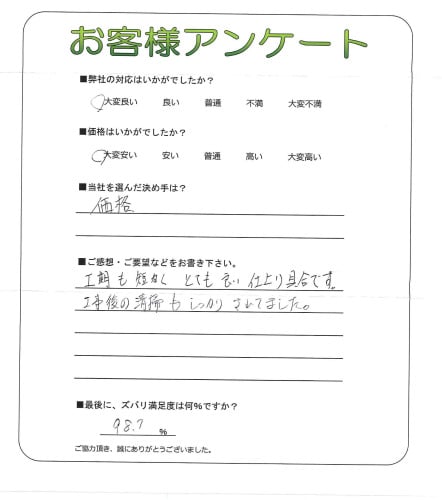 お客様アンケート
■弊社の対応はいかがでしたか？
大変良い 良い 普通 不満 大変不満
■価格はいかがでしたか？
大変安い 安い 普通 高い 大変高い
■当社を選んだ決め手は？
価格
■ご感想・ご要望などをお書き下さい。
工期も短かく とても良い仕上り具合です。
工事後の清掃もしっかりされてました。
■最後に、ズバリ満足度は何％ですか？
98.7 ％
ご協力頂き、誠にありがとうございました。